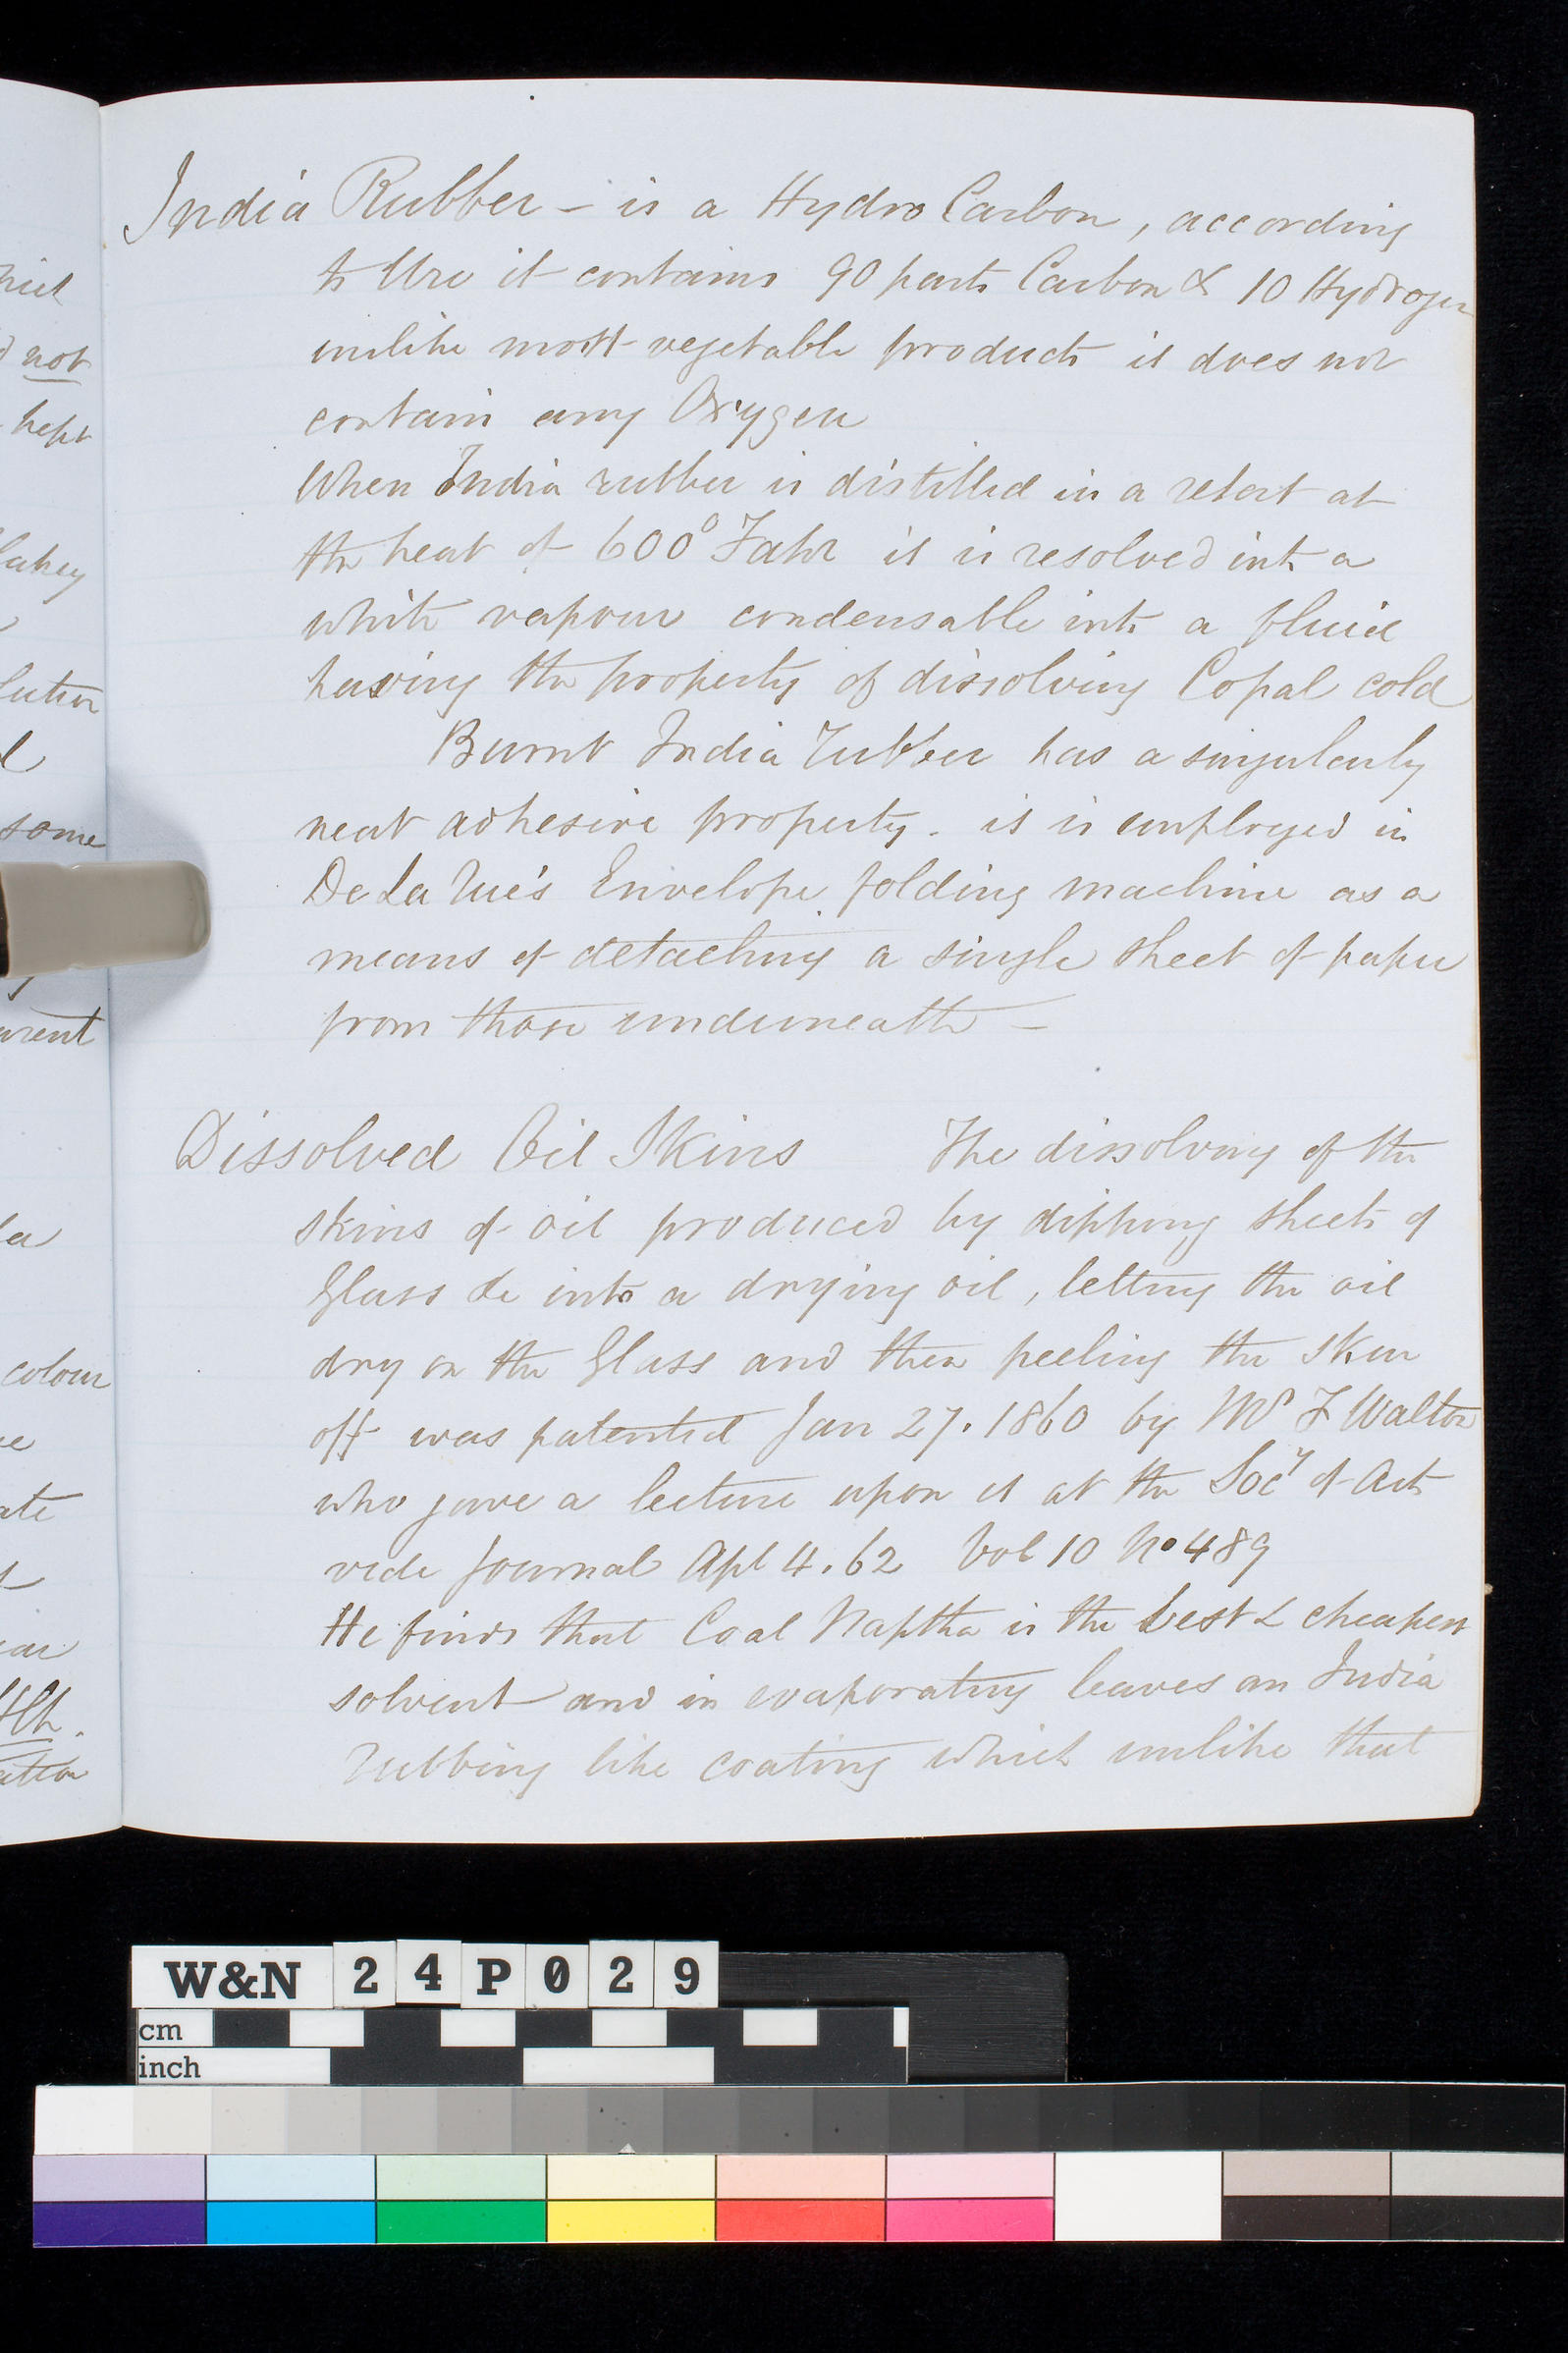 India Rubber - is a Hydro Carbon, according
to Ure it contains 90 parts Carbon & 10 Hydrogen
unlike most vegetable products it does not
contain any Oxygen
When India rubber is distilled in a retort at
the heat of 600° Fahr it is resolved into a
white vapour condensable into a fluid
having the property of dissolving Copal cold
Burnt India Rubber has a singularly
neat adhesive property. it is employed in
De La Rue's Envelope folding machine as a
means of detaching a single sheet of paper
from those underneath -
Dissolved Oil Skins The dissolving of the
skins of oil produced by dipping sheets of
Glass &c into a drying oil, letting the oil
dry on the Glass and then peeling the skin
off was patented Jan 27. 1860 by Mr F Walton
who gave a lecture upon it at the Socy of Arts
vide Journal Apl 4. 62 Vol 10 No 489
He finds that Coal Naptha is the best & cheapest
solvent and in evaporating leaves an India
rubbing like coating which unlike that
not
kept
some
colour
W&N 24P029
cm
inch